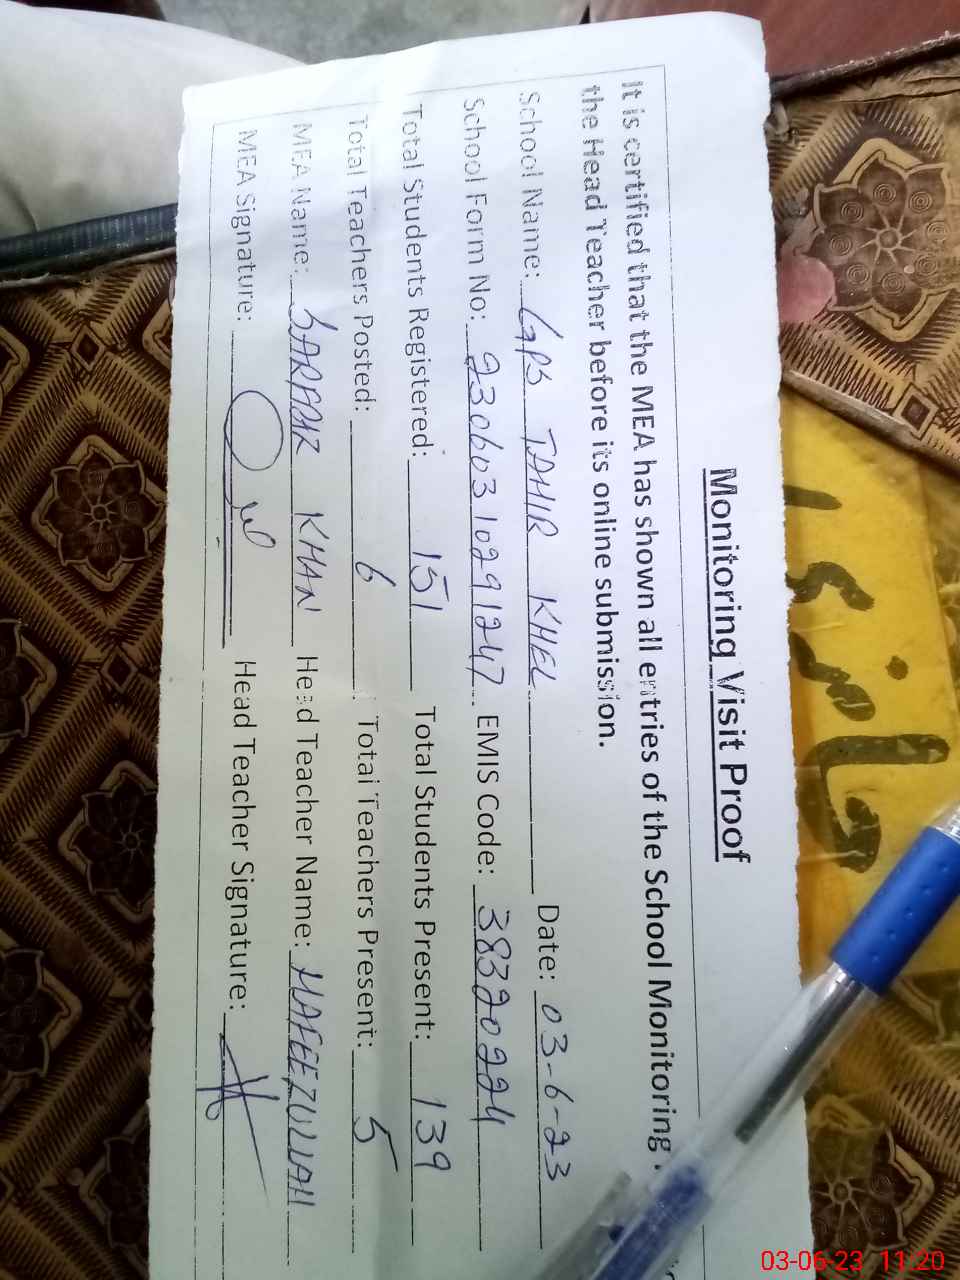 Monitoring Visit Proof
It is certified that the MEA has shown all entries of the School Monitoring
the Head Teacher before its online submission.
School Name: GPS TAHIR KHEL Date: 03-6-23
School Form No: 230603 10291247 EMIS Code: 38320224
Total Students Registered: 151 Total Students Present: 139
Total Teachers Posted: 6 Total Teachers Present: 5
MEA Name: SARDAR KHAN Head Teacher Name: HAFEEZULLAH
MEA Signature: Head Teacher Signature:
03-06-23 11:20